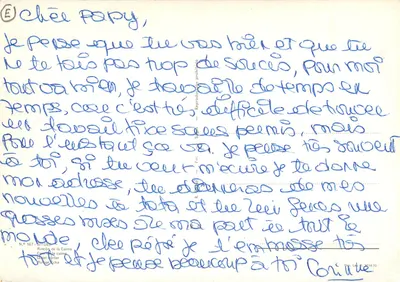 E Chée PAPY,
Je pense que tu vas bien et que tu
ne te fais pas trop de soucis, pour moi
tout va bien, je travaille de temps en
temps, car c'est très difficile de trouver
un travail fixe sans permis, mais
pour l'instant ça va. Je pense très souvent
à toi, si tu veux m'écrire je te donne
mon adresse, tu donneras de mes
nouvelles à tata et tu leur feras une
grosses bises de ma part et tout le
monde, cher pépé je t'embrasse très
fort et je pense beaucoup à toi Corinne